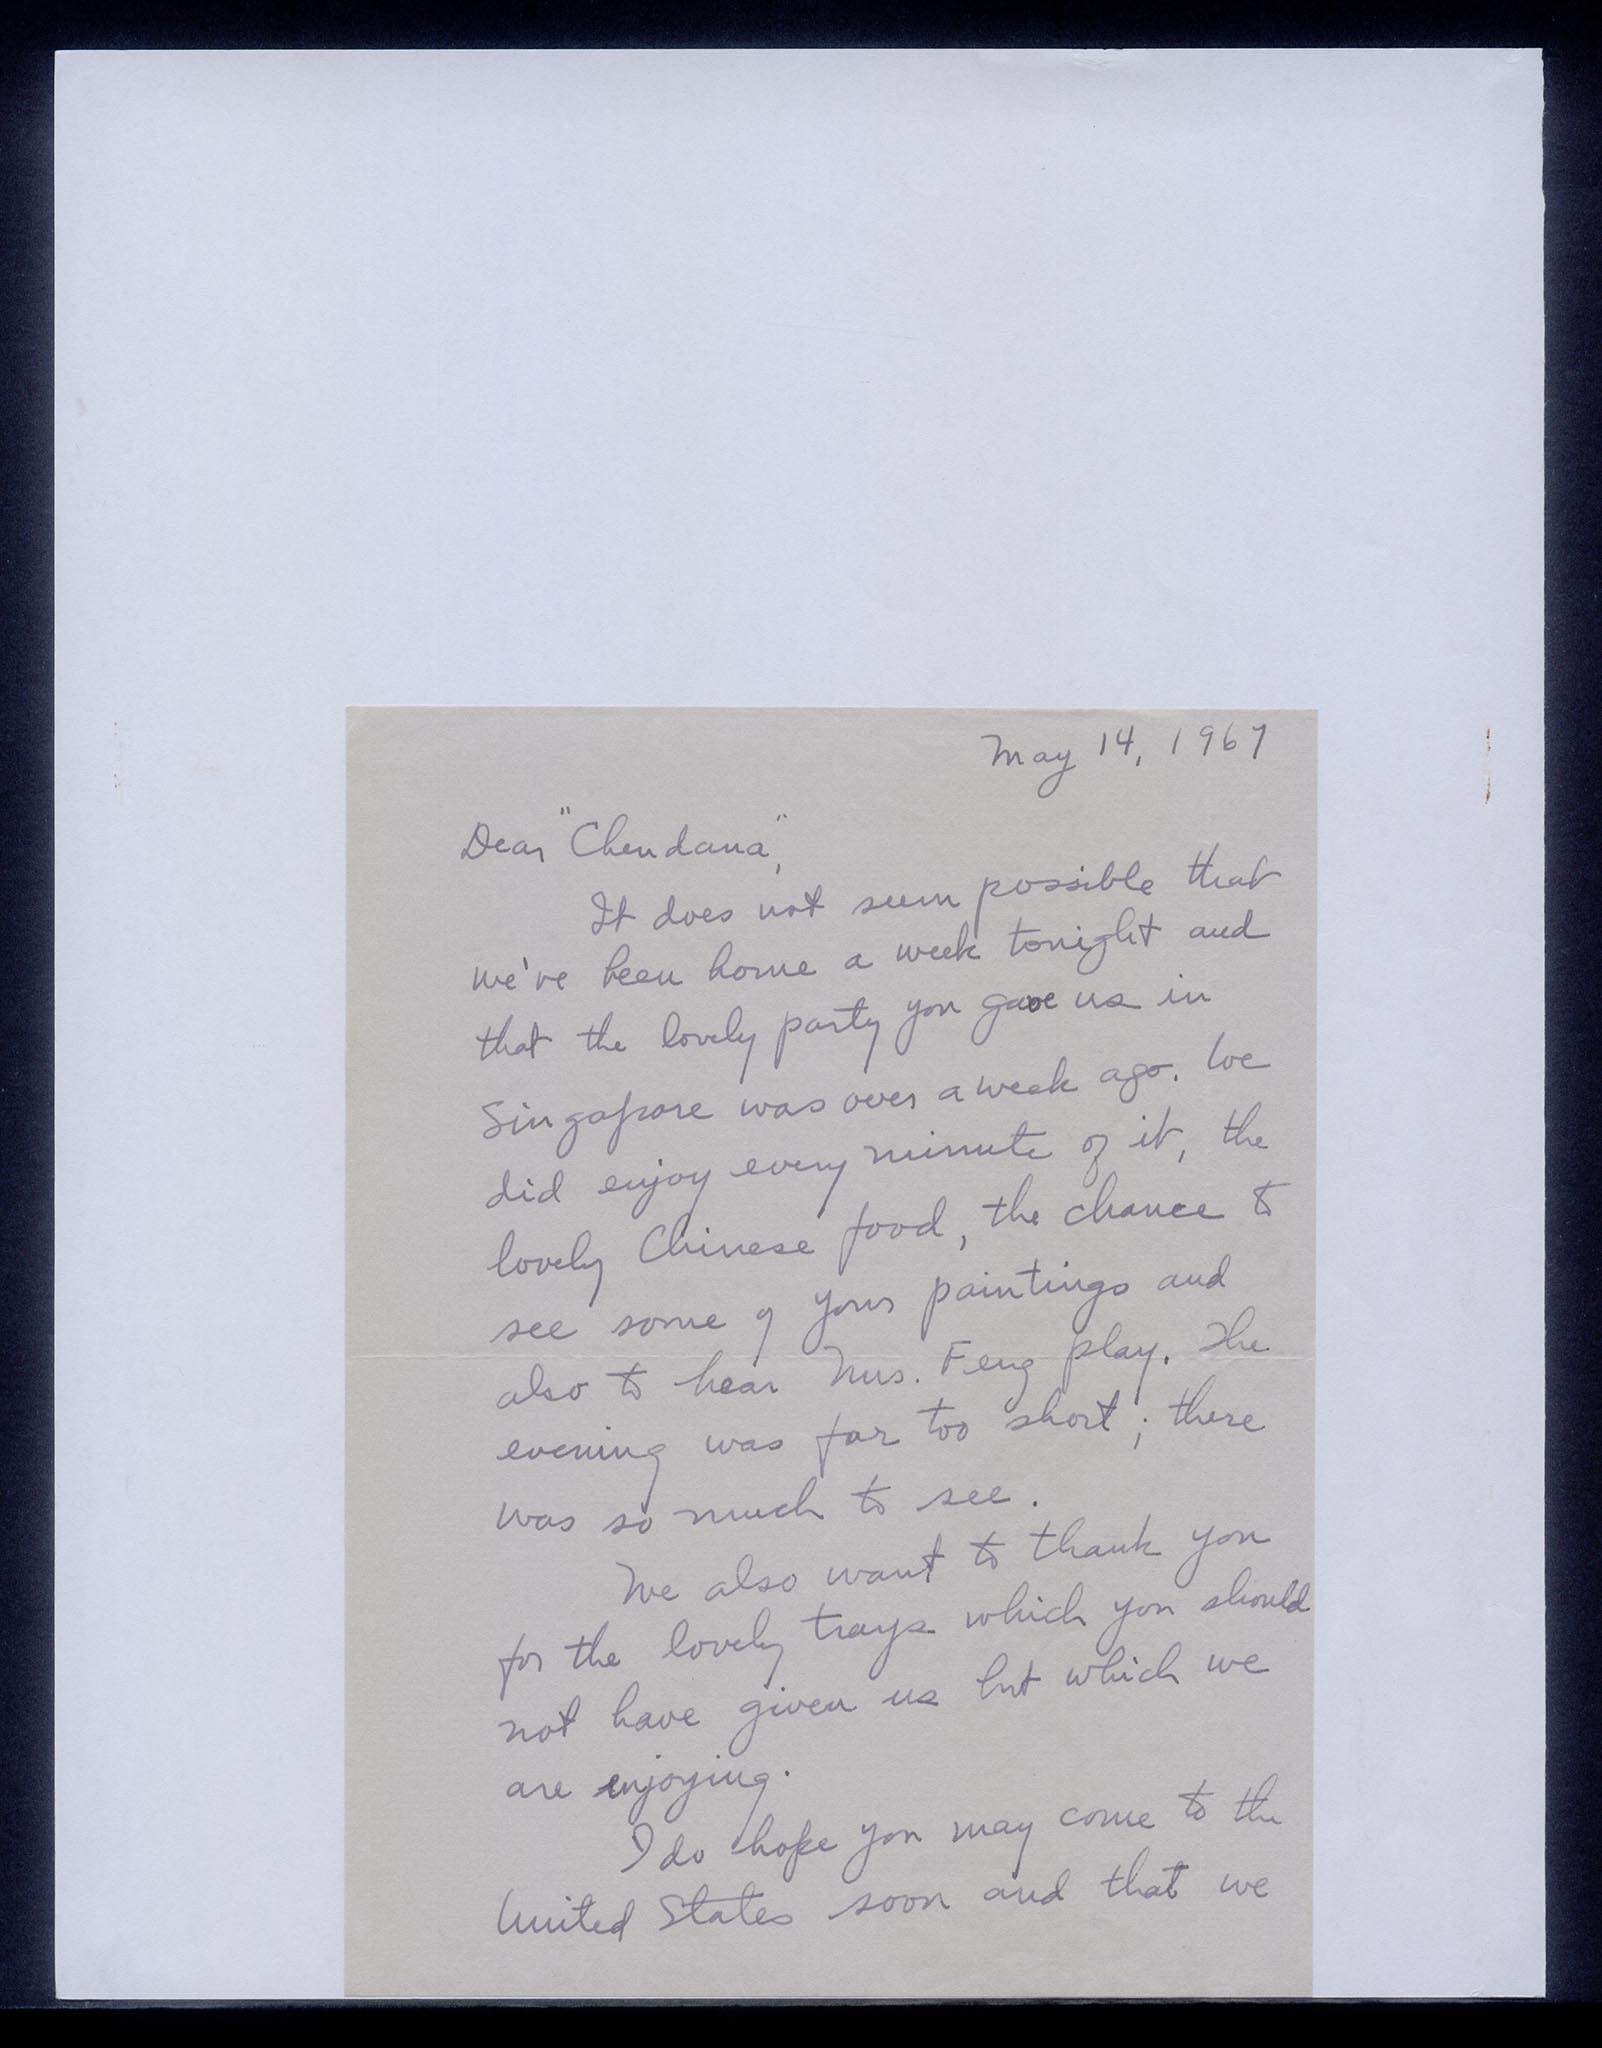 May 14, 1967
Dear "Chendana",
It does not seem possible that
we've been home a week tonight and
that the lovely party you gave us in
Singapore was over a week ago. We
did enjoy every minute of it, the
lovely Chinese food, the chance to
see some of your paintings and
also to hear Mrs. Feng play. The
evening was far too short; there
was so much to see.
We also want to thank you
for the lovely trays which you should
not have given us but which we
are enjoying.
I do hope you may come to the
United States soon and that we